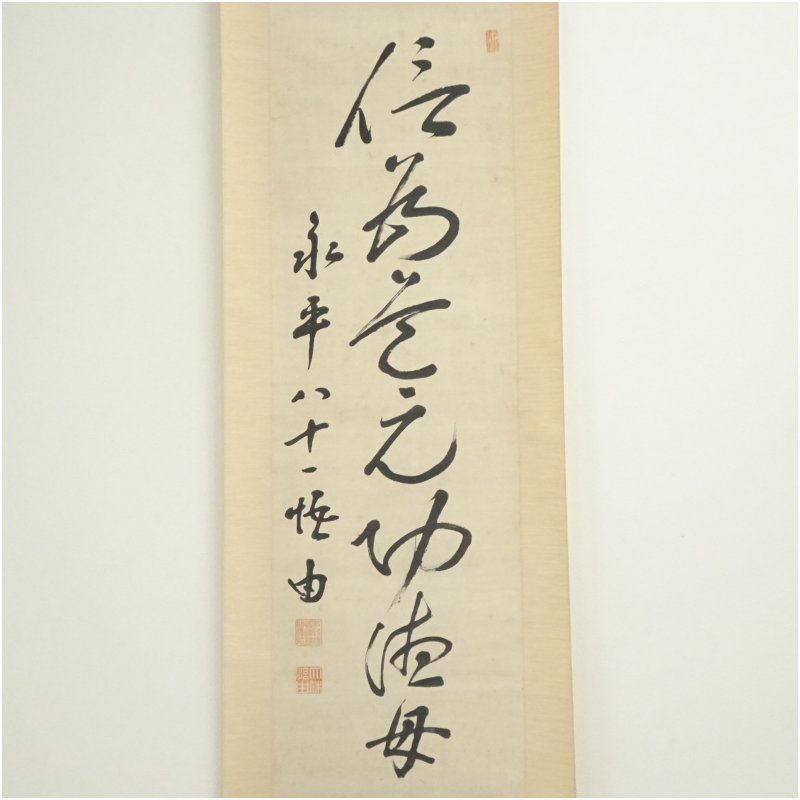 信為道元功徳母
永平八十一悟由